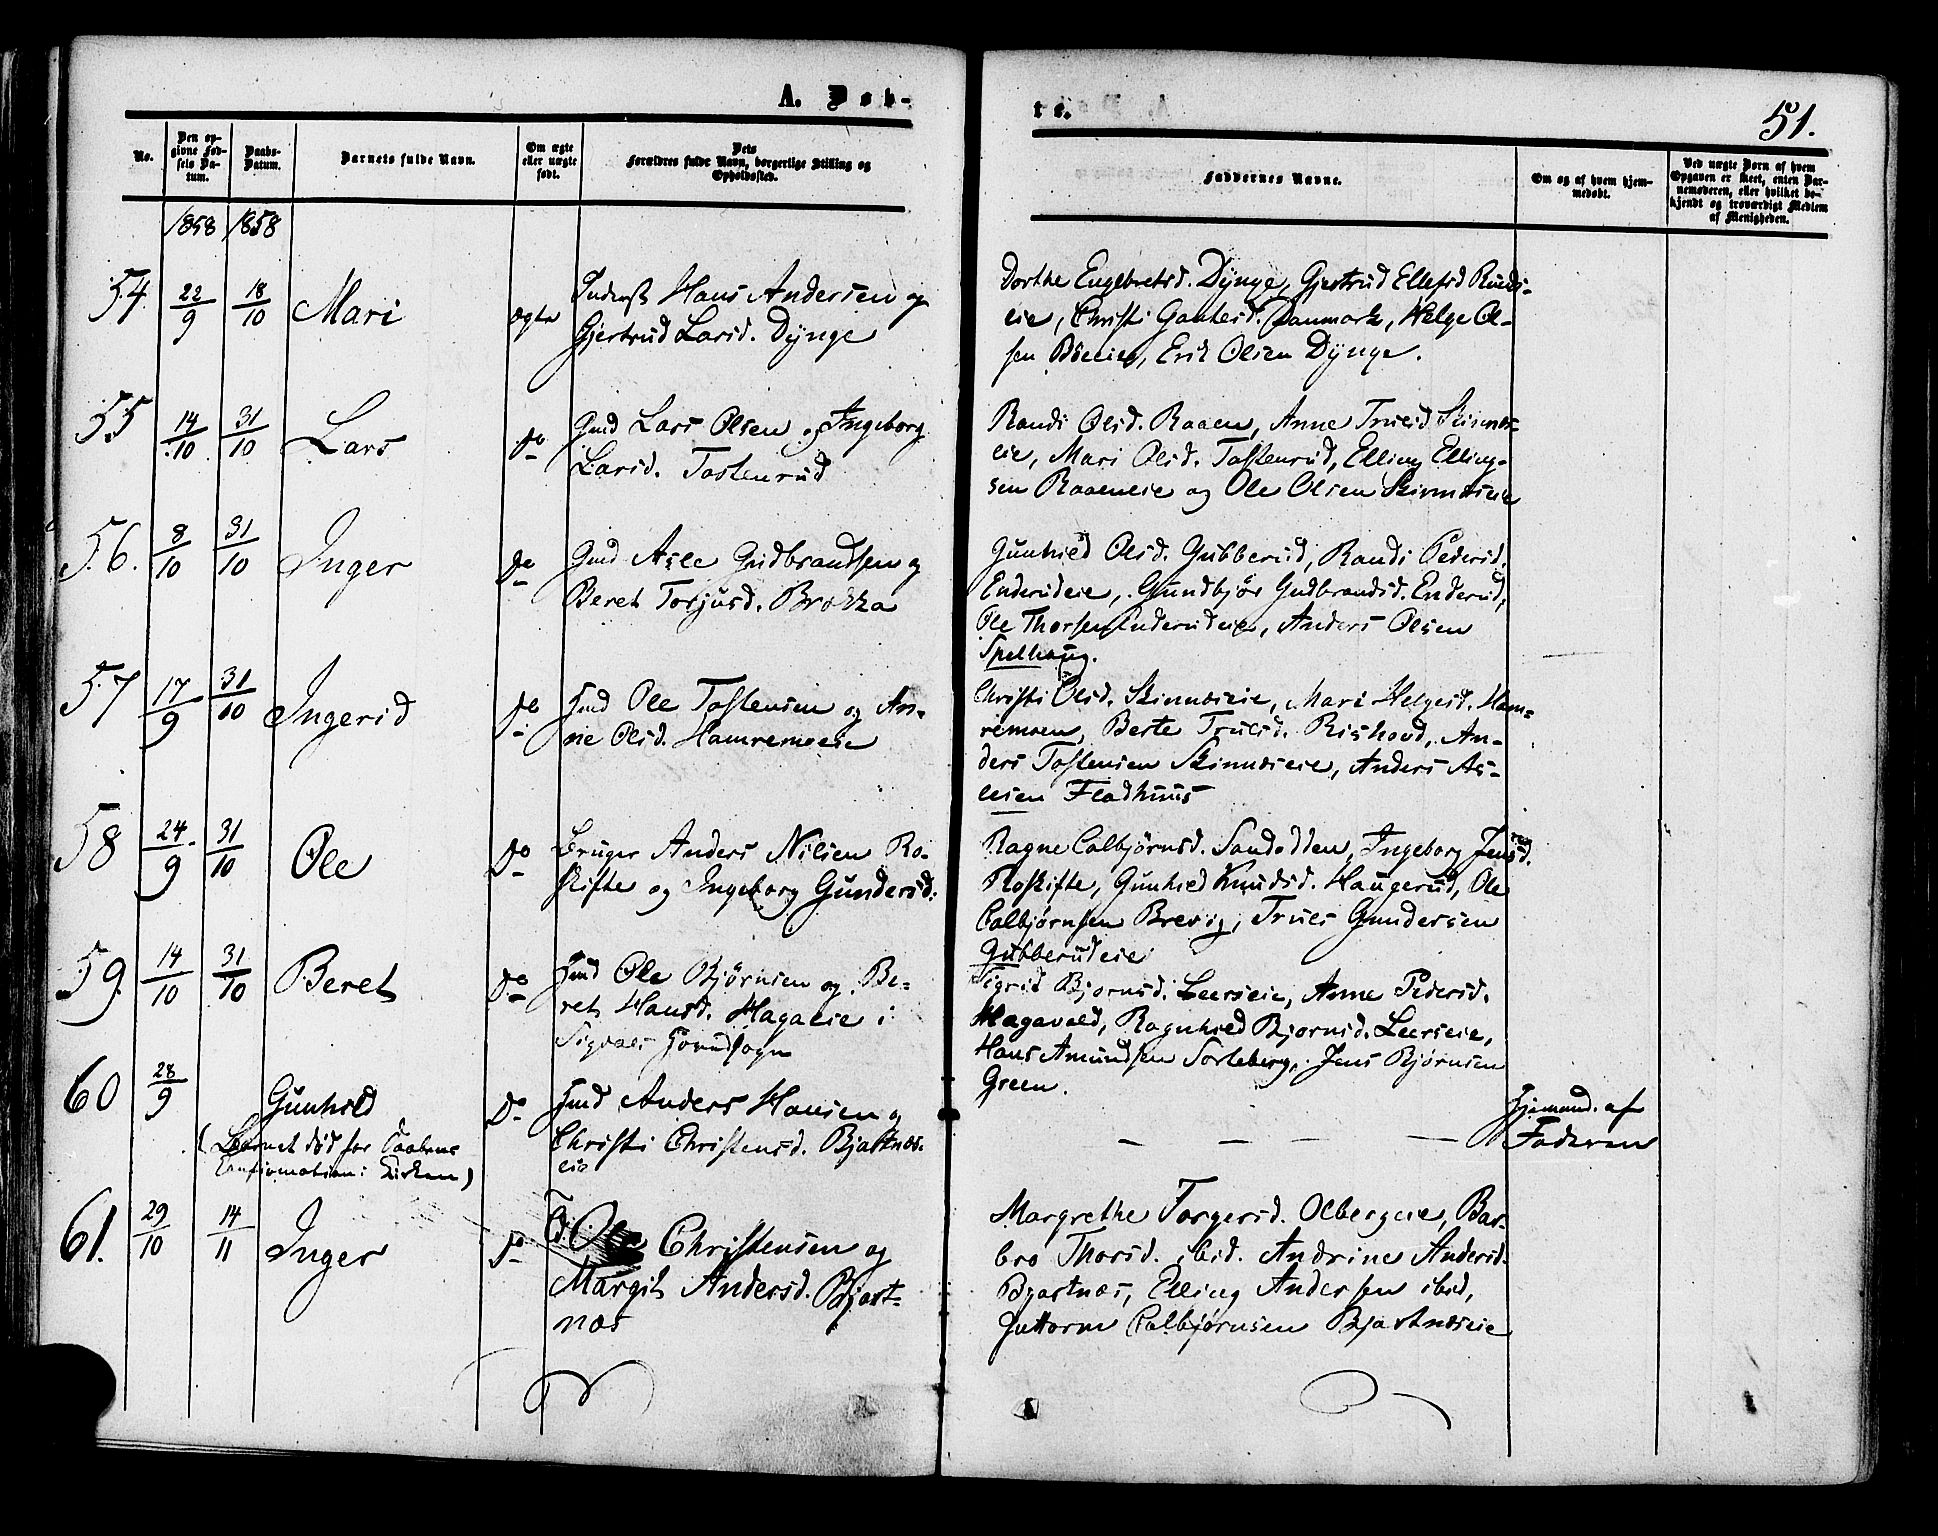 A. Døb-
te.
51.
No.
Den op-
givne Fød-
sels Da-
tum.
Daabs-
Datum.
Barnets fulde Navn.
Om ægte
eller uægte
født.
Dets
Forældres fulde Navn, borgerlige Stilling og
Opholdssted.
Faddernes Navne.
Om og af hvem hjem-
medøbt.
Ved uægte Børn af hvem
Opgaven er skeet, enten Bar-
nemoderen, eller hvilket be-
kjendt og troværdigt Medlem
af Menigheden.
1858 1858
54 22/9 18/10 Mari ægte
Inderst Hans Andersen og
Gjertrud Larsd. Dynge
Dorthe Engebretsd. Dynge, Gjertrud Ellefsd Ruuds-
eie, Christi Gautesd. Danmark, Helge Ol-
sen Bøeeie, Erik Olsen Dynge.
55 14/10 31/10 Lars Do
Gmd Lars Olsen og Ingeborg
Larsd. Tostenrud
Randi Olsd. Raaen, Anne Truelsd Skinnes-
eie, Mari Olsd. Tostenrud, Elling Elling-
sen Raaeneie og Ole Olsen Skinneseie
56. 8/10 31/10 Inger Do
Gmd Asle Gudbrandsen og
Beret Torjusd. Brokka
Gunhild Olsd. Gubberud, Randi Pedersd.
Enderudeie, Gundbjør Gudbrandsd. Enderud,
Ole Thorsen Enderudeie, Anders Olsen
Spelhaug.
57 17/9 31/10 Ingerid Do
Hmd Ole Tostensen og An-
ne Olsd. Hamremoeie
Christi Olsd. Skinneseie, Mari Helgesd. Ham-
remoen, Berte Truelsd. Rishovd, An-
ders Tostensen Skinneseie, Anders As-
lesen Fladhuus
58 24/9 31/10 Ole Do
Bruger Anders Nilsen Ro-
skifte og Ingeborg Gundersd.
Ragne Colbjørnsd. Sandodden, Ingeborg Jensd.
Roskifte, Gunhild Knudsd. Haugerud, Ole
Colbjørnsen Brevig, Truls Gundersen
Gubberudeie
59 14/10 31/10 Beret Do
Hmd Ole Bjørnsen og Be-
ret Hansd. Hagaeie i
Sigdals Hovedsogn
Sigrid Bjornsd. Leerseie, Anne Pedersd.
Hagavold, Ragnhild Bjornsd. Leerseie,
Hans Amundsen Sorteberg, Jens Bjørnsen
Green.
60 28/9 Gunhild Do
(Barnet død før Daabens
Confirmation i Kirken)
Hmd Anders Hansen og
Christi Christensd. Bjastnæs-
eie
Hjemmed. af
Faderen
61. 29/10 14/11 Inger Do
Ole Christensen og
Margit Andersd. Bjast-
næs
Margrethe Torgersd. Olbergeie, Bar-
bro Thorsd. ibid. Andrine Andersd.
Bjastnæs, Elling Andersen ibid,
Guttorm Colbjørnsen Bjastnæseie